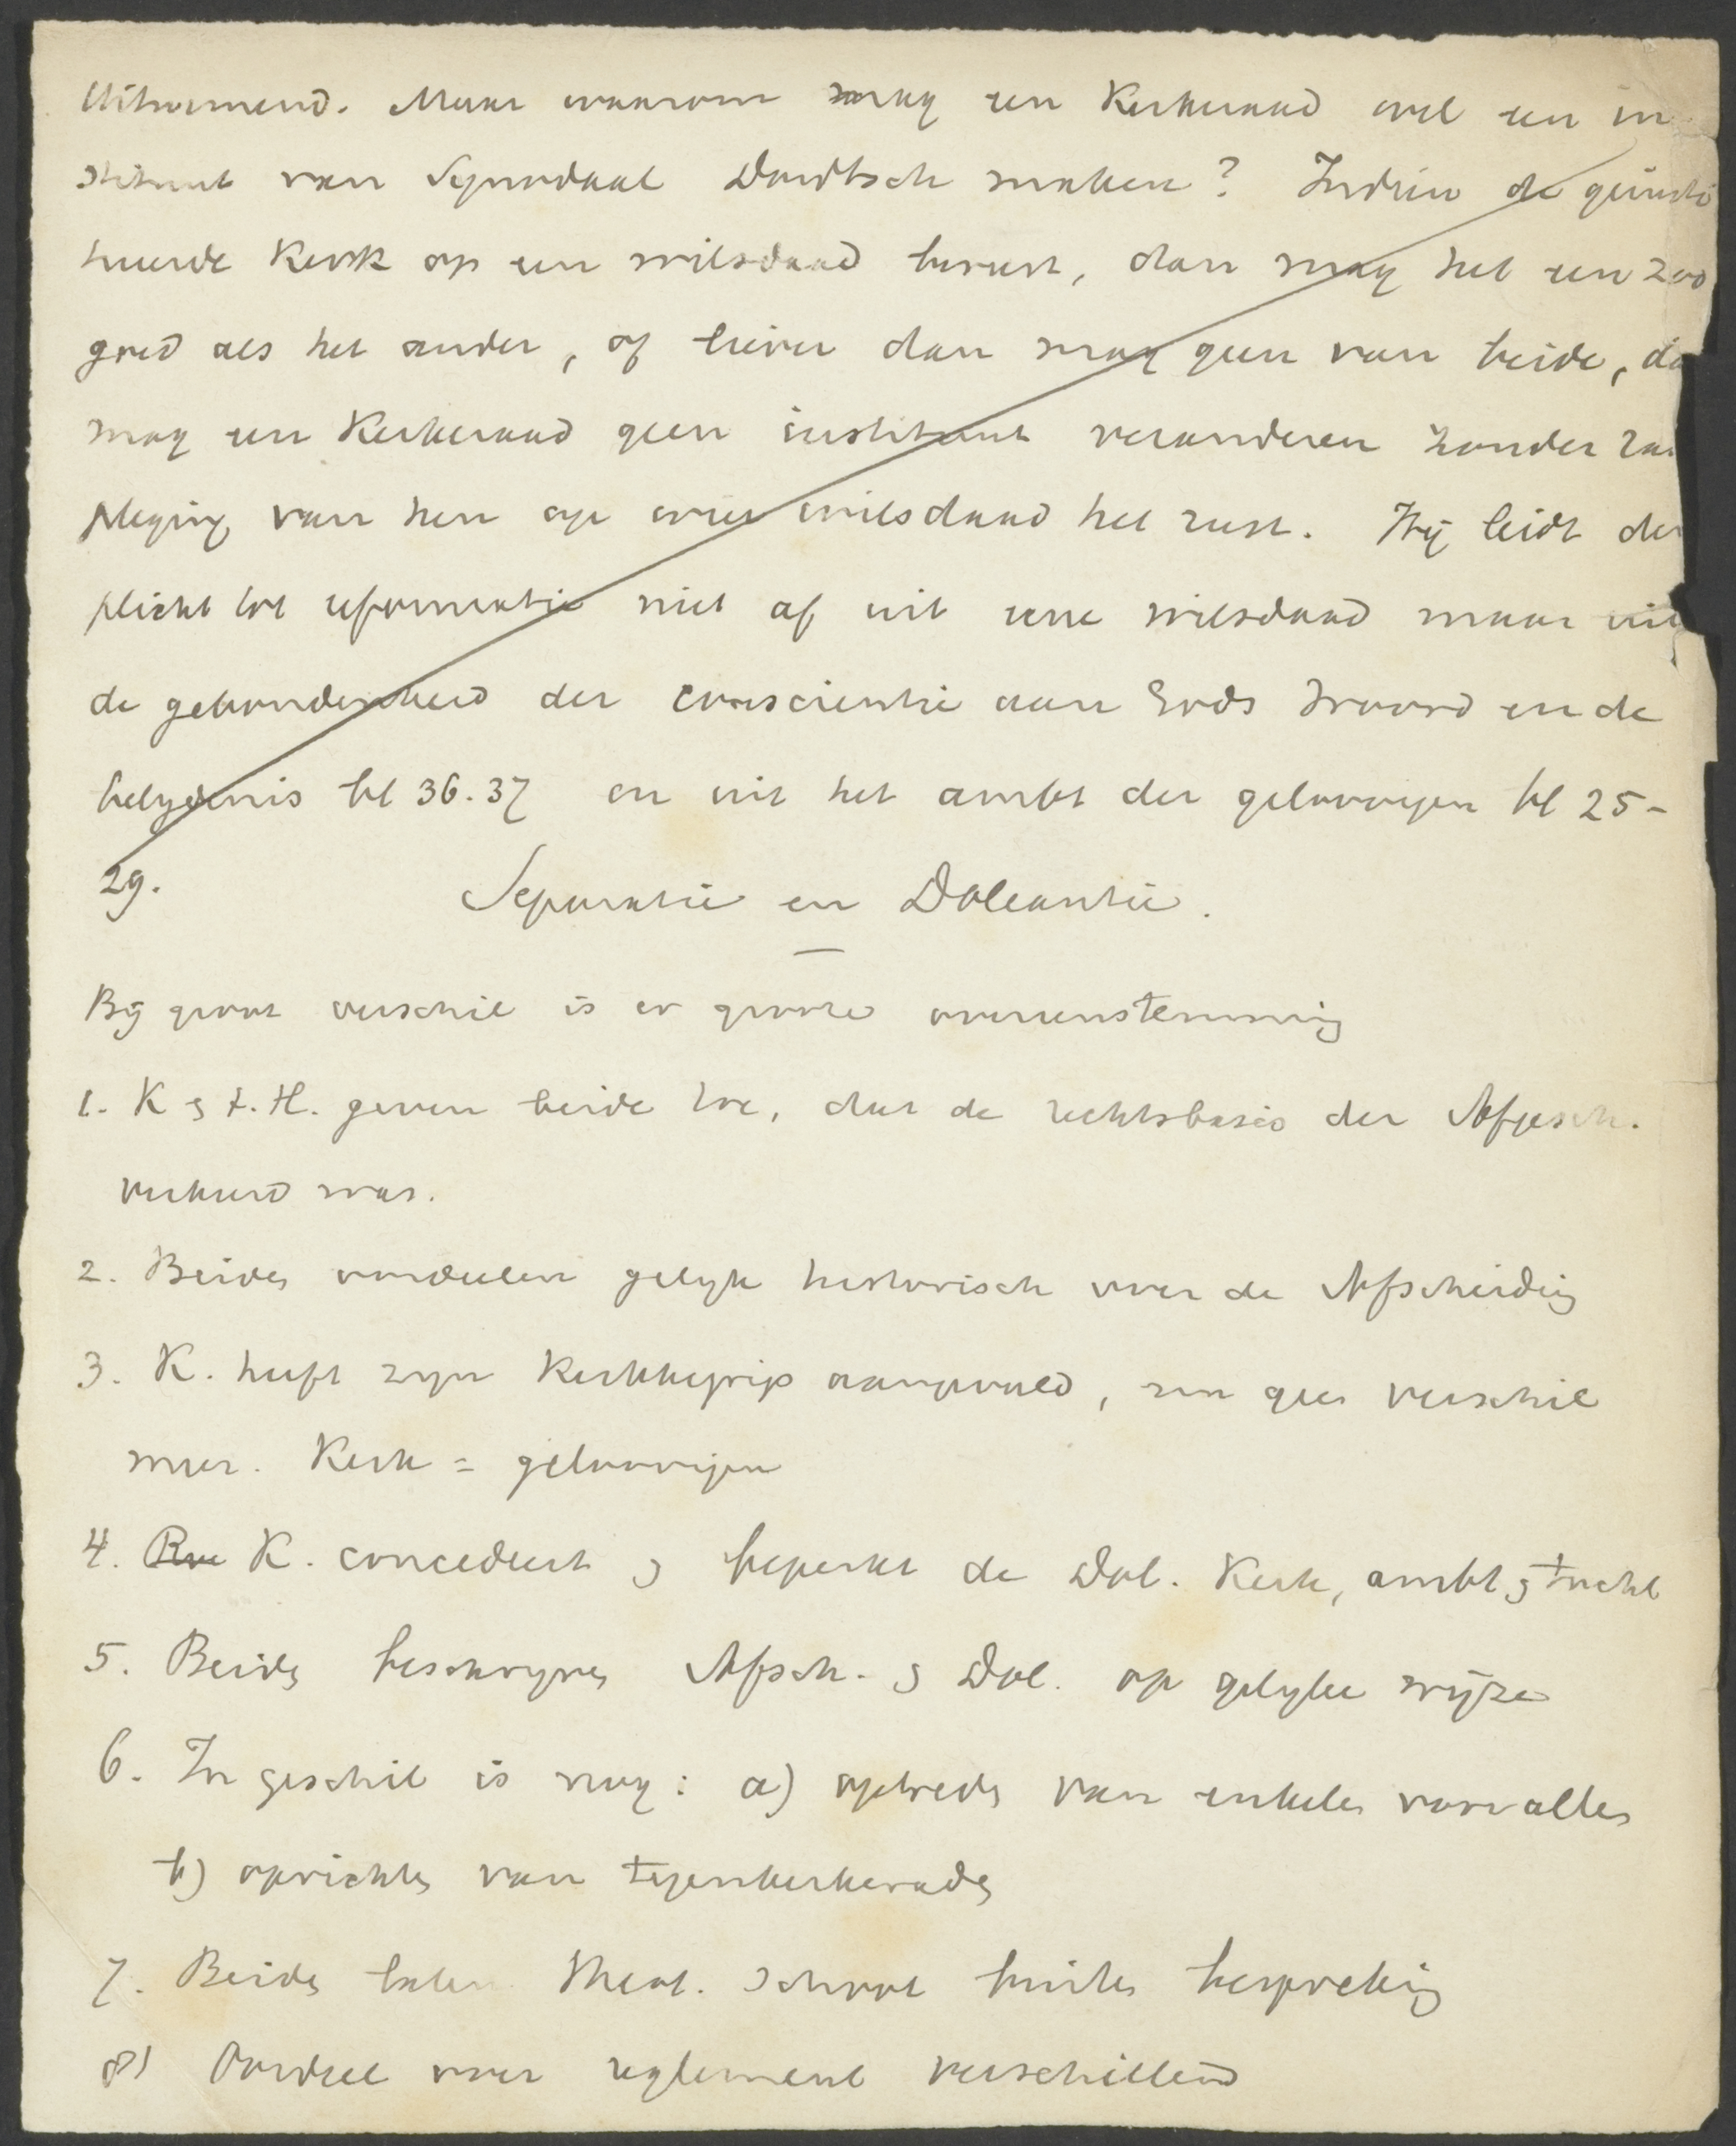 Uitnemend. Maar waarom mag een Kerkeraad wel een in
stituut van Synodaal Dordtsch maken? Indien de geinsti
tueerde Kerk op een wilsdaad berust, dan mag het een zoo
goed als het ander, of liever dan mag geen van beide, da
mag een Kerkeraad geen instituut veranderen zonder ra
pleging van hen op wier wilsdaad het rust. Hij leidt de
plicht tot reformatie niet af uit eene wilsdaad maar uit
de gebondenheid der conscientie aan Gods Woord en de
belydenis bl 36.37 en uit het ambt der geloovigen bl 25-
29.
Separatie en Doleantie.
Bij groot verschil is er groote overeenstemming
1. K & t. H. geven beide toe, dat de rechtsbasis der Afgesch.
verkeerd was.
2. Beiden oordeelen gelyk historisch over de Afscheiding
3. K. heeft zyn Kerkbegrip aangevuld, zoo geen verschil
meer. Kerk = geloovigen
4. K. concedeert & beperkt de Dol. Kerk, ambt & tucht
5. Beiden beschryven Afsch. & Dol. op gelyke wijze
6. In geschil is nog: a) optreden van enkelen voor allen
b) oprichten van tegenkerkeraden
7. Beiden laten Theol. School buiten bespreking
8) Oordeel over reglement verschillend